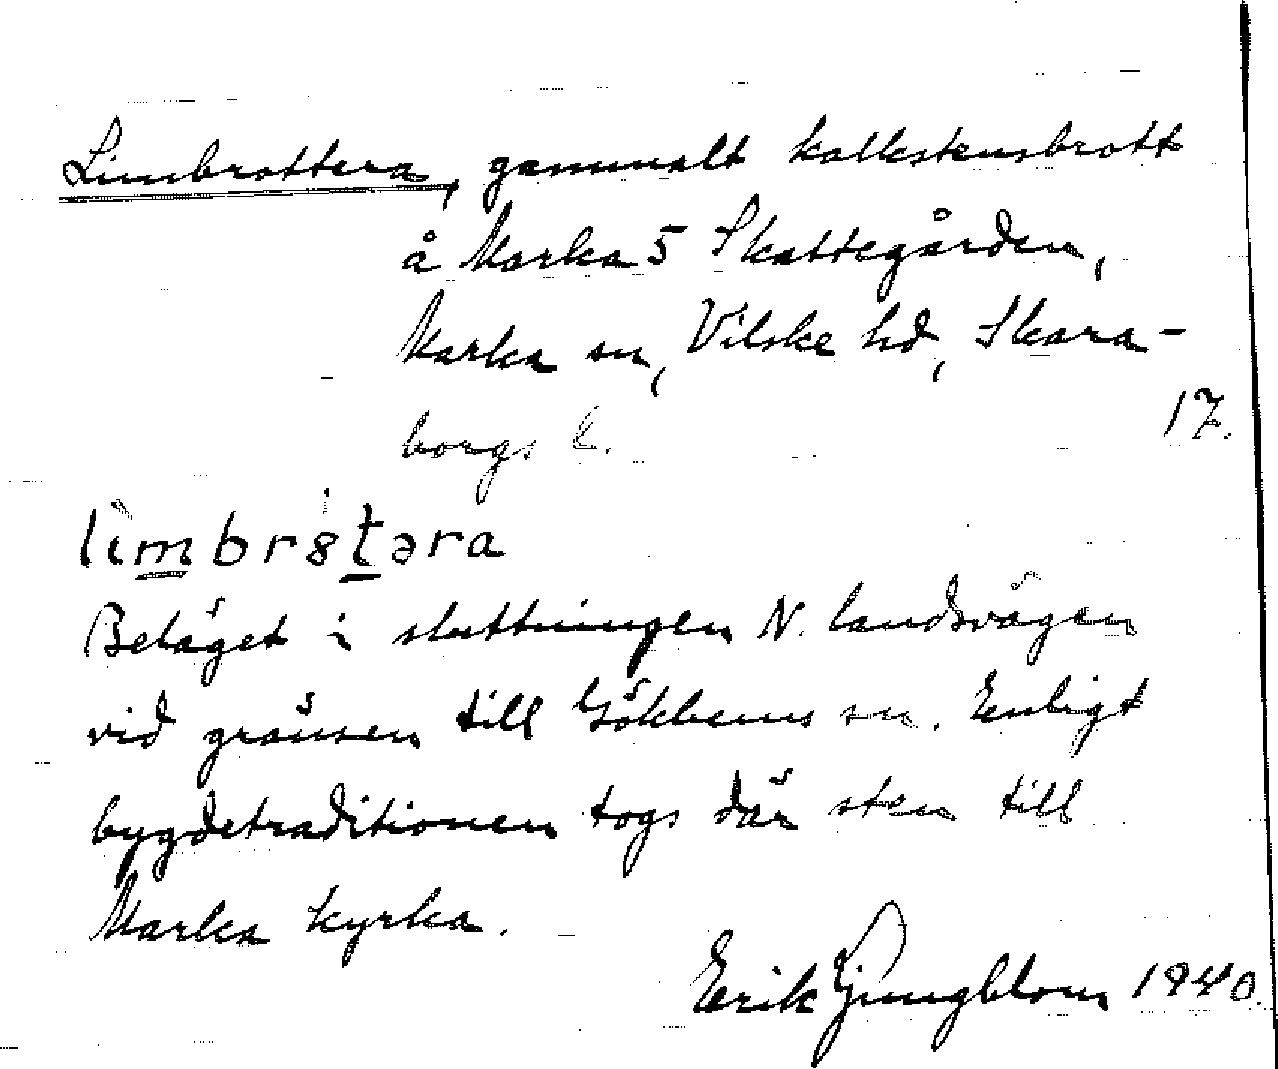 Limbrottera, gammalt kalkstensbrott
å Marka 5 Skattegården,
Marka sn, Vilske hd, Skara-
borgs l. 17.
lìmbr8̀təra
Beläget i sluttningen N. landsvägen
vid gränsen till Gökhems sn. Enligt
bygdetraditionen togs där sten till
Marka kyrka.
Erik Ljungblom 1940.